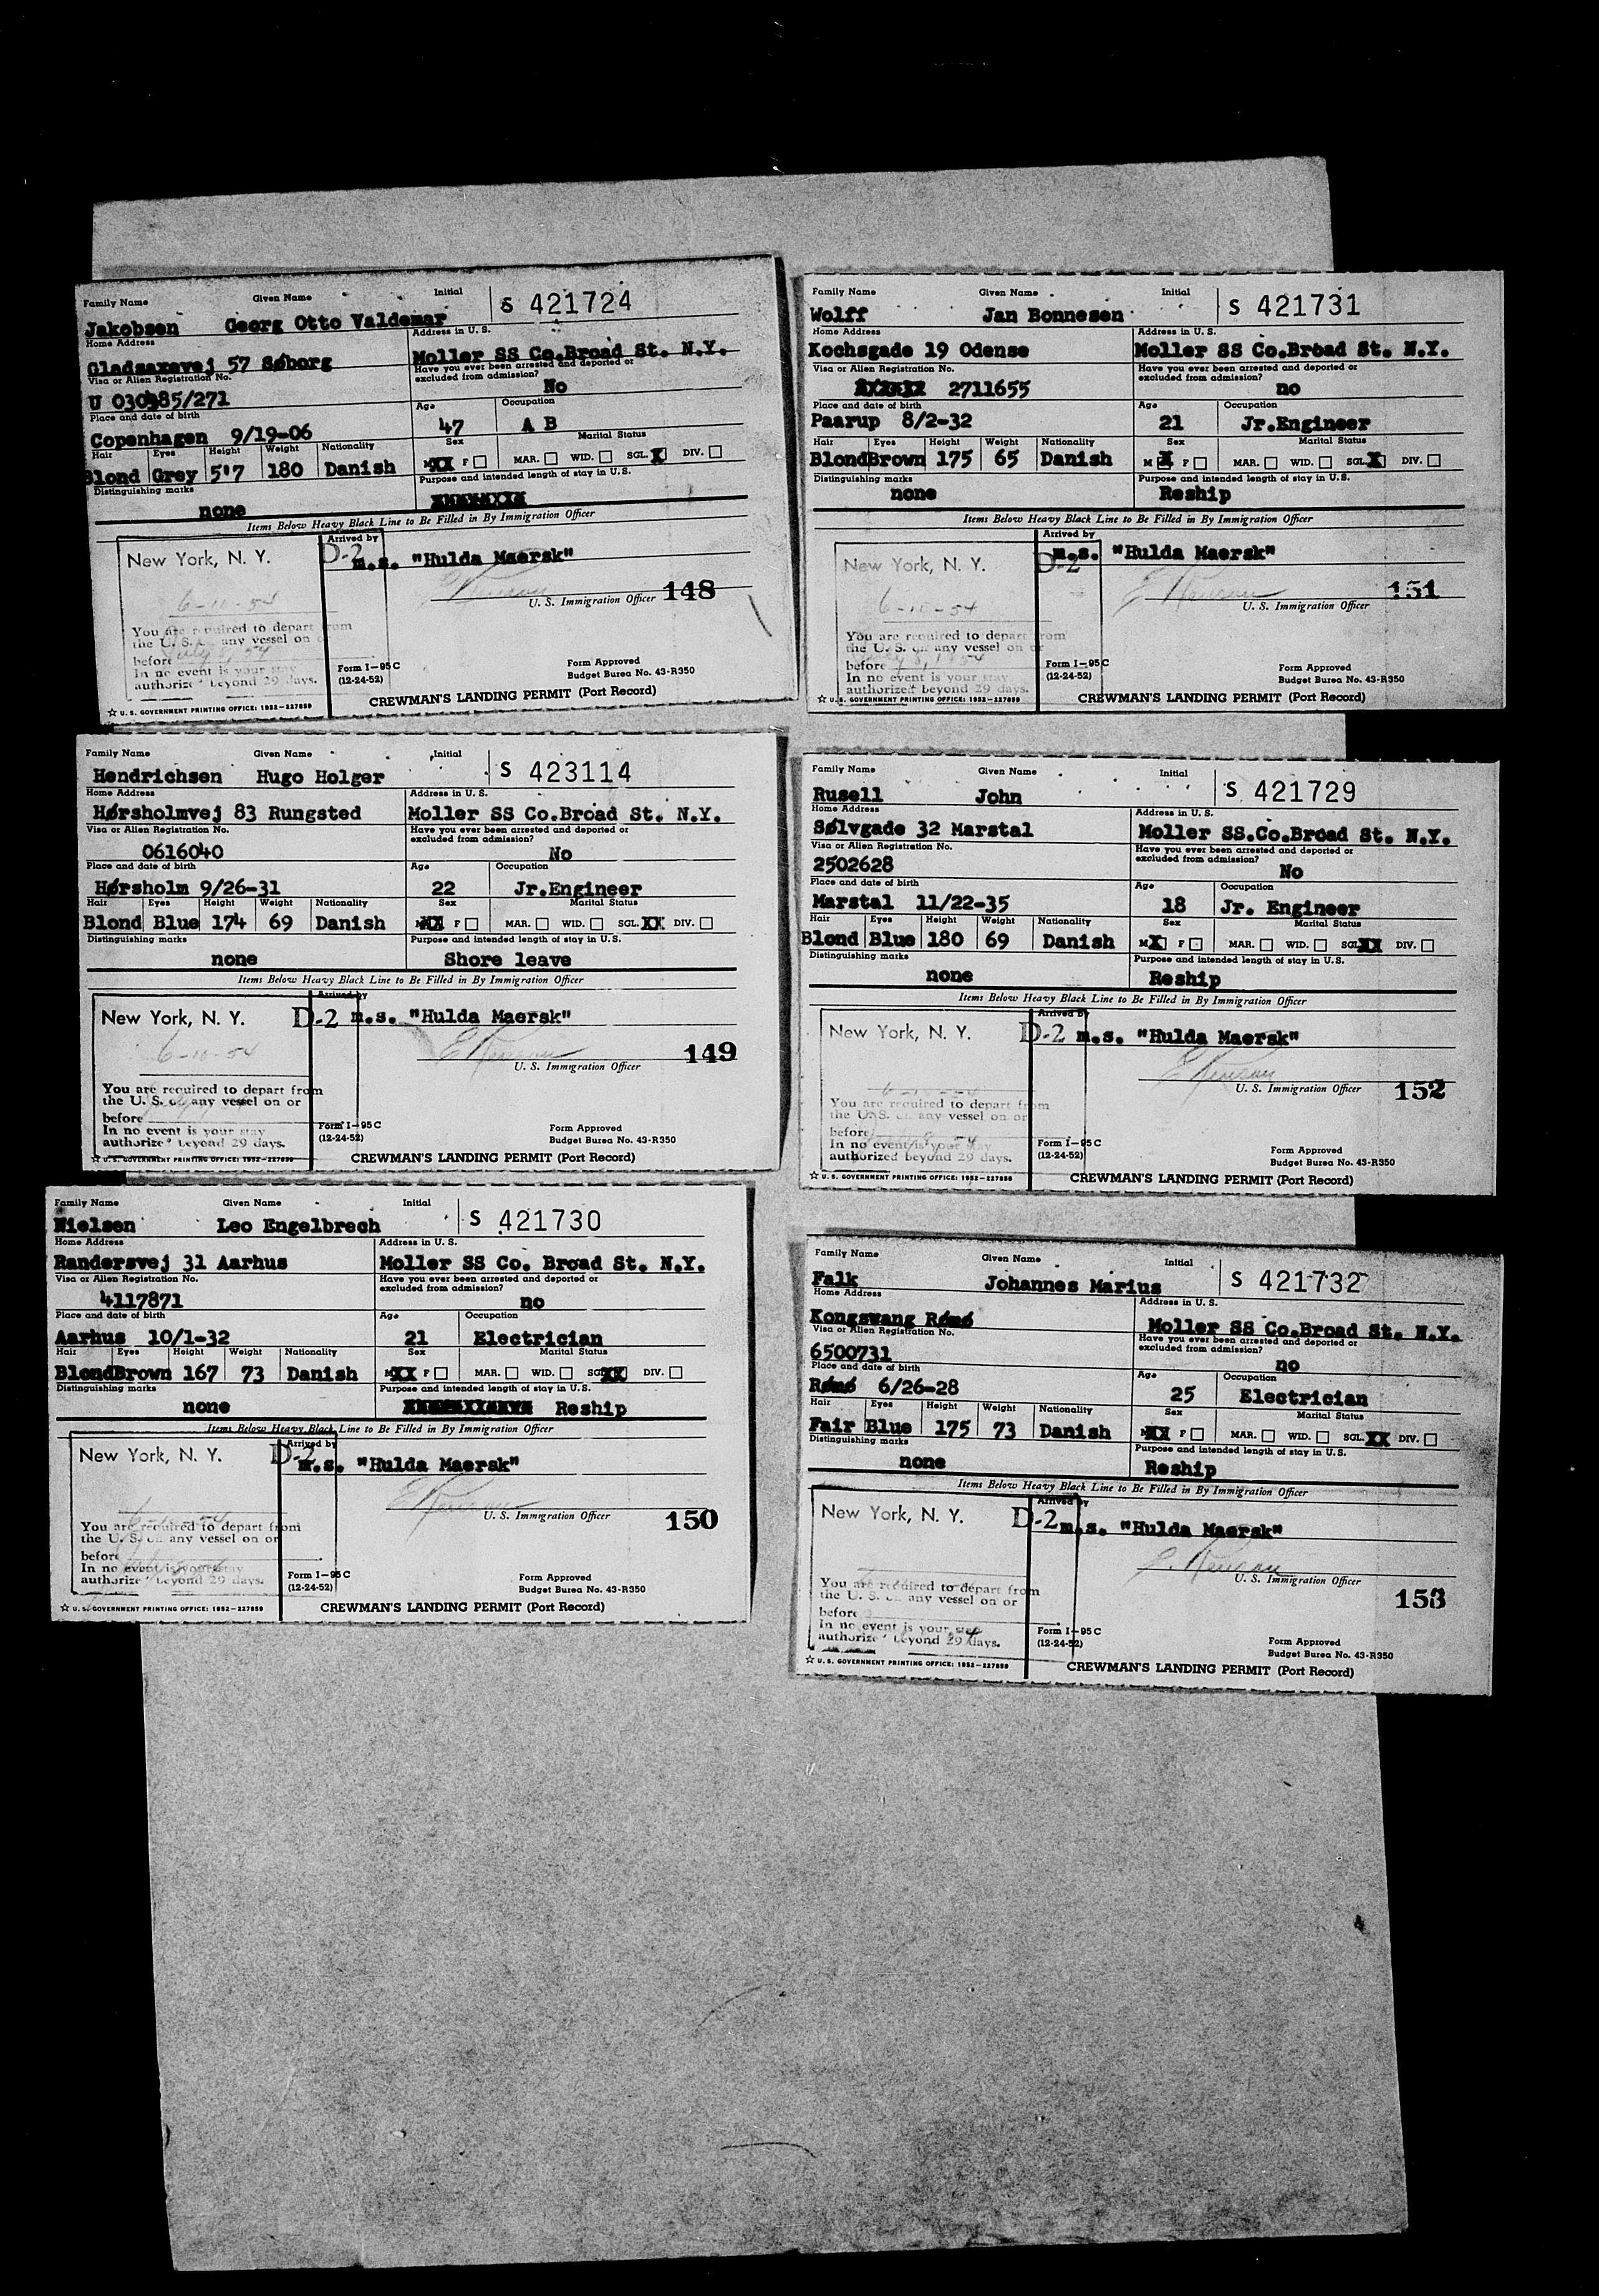 Family Name Given Name Initial S 421724
Jakobsen Georg Otto Valdemar
Home Address Address in U. S.
Gladsaxevej 57 Søborg Moller SS Co.Broad St. N.Y.
Visa or Alien Registration No. Have you ever been arrested and deported or excluded from admission?
U 030485/271 No
Place and date of birth Age Occupation
Copenhagen 9/19-06 47 A B
Hair Eyes Height Weight Nationality Sex Marital Status
Blond Grey 5'7 180 Danish M XX F MAR. WID. SGL. X DIV.
Distinguishing marks Purpose and intended length of stay in U.S.
none
Items Below Heavy Black Line to Be Filled in By Immigration Officer
Arrived by
New York, N. Y. D-2 m.s. "Hulda Maersk"
6-10-54
U. S. Immigration Officer 148
You are required to depart from
the U. S. on any vessel on or
before July 8, 54
In no event is your stay
authorized beyond 29 days.
Form I-95 C
(12-24-52)
Form Approved
Budget Burea No. 43-R350
☆ U. S. GOVERNMENT PRINTING OFFICE: 1952-227859 CREWMAN'S LANDING PERMIT (Port Record)
Family Name Given Name Initial S 421731
Wolff Jan Bonnesen
Home Address Address in U. S.
Kochsgade 19 Odense Moller SS Co.Broad St. N.Y.
Visa or Alien Registration No. Have you ever been arrested and deported or excluded from admission?
2711655 no
Place and date of birth Age Occupation
Paarup 8/2-32 21 Jr.Engineer
Hair Eyes Height Weight Nationality Sex Marital Status
Blond Brown 175 65 Danish M X F MAR. WID. SGL. X DIV.
Distinguishing marks Purpose and intended length of stay in U.S.
none Reship
Items Below Heavy Black Line to Be Filled in By Immigration Officer
Arrived by
New York, N. Y. D-2 m.s. "Hulda Maersk"
6-10-54
U. S. Immigration Officer 151
You are required to depart from
the U. S. on any vessel on or
before July 8, 1954
In no event is your stay
authorized beyond 29 days.
Form I-95 C
(12-24-52)
Form Approved
Budget Burea No. 43-R350
☆ U. S. GOVERNMENT PRINTING OFFICE: 1952-227859 CREWMAN'S LANDING PERMIT (Port Record)
Family Name Given Name Initial S 423114
Hendrichsen Hugo Holger
Home Address Address in U. S.
Hørsholmvej 83 Rungsted Moller SS Co.Broad St. N.Y.
Visa or Alien Registration No. Have you ever been arrested and deported or excluded from admission?
0616040 No
Place and date of birth Age Occupation
Hørsholm 9/26-31 22 Jr.Engineer
Hair Eyes Height Weight Nationality Sex Marital Status
Blond Blue 174 69 Danish M XX F MAR. WID. SGL. XX DIV.
Distinguishing marks Purpose and intended length of stay in U.S.
none Shore leave
Items Below Heavy Black Line to Be Filled in By Immigration Officer
Arrived by
New York, N. Y. D-2 m.s. "Hulda Maersk"
6-10-54
U. S. Immigration Officer 149
You are required to depart from
the U. S. on any vessel on or
before
In no event is your stay
authorized beyond 29 days.
Form I-95 C
(12-24-52)
Form Approved
Budget Burea No. 43-R350
☆ U. S. GOVERNMENT PRINTING OFFICE: 1952-227859 CREWMAN'S LANDING PERMIT (Port Record)
Family Name Given Name Initial S 421729
Rusell John
Home Address Address in U. S.
Sølvgade 32 Marstal Moller SS.Co.Broad St. N.Y.
Visa or Alien Registration No. Have you ever been arrested and deported or excluded from admission?
2502628 No
Place and date of birth Age Occupation
Marstal 11/22-35 18 Jr. Engineer
Hair Eyes Height Weight Nationality Sex Marital Status
Blond Blue 180 69 Danish M X F MAR. WID. SGL XX DIV.
Distinguishing marks Purpose and intended length of stay in U.S.
none Reship
Items Below Heavy Black Line to Be Filled in By Immigration Officer
Arrived by
New York, N. Y. D-2 m.s. "Hulda Maersk"
U. S. Immigration Officer 152
You are required to depart from
the U. S. on any vessel on or
before
In no event is your stay
authorized beyond 29 days.
Form I-95 C
(12-24-52)
Form Approved
Budget Burea No. 43-R350
☆ U. S. GOVERNMENT PRINTING OFFICE: 1952-227859 CREWMAN'S LANDING PERMIT (Port Record)
Family Name Given Name Initial S 421730
Nielsen Leo Engelbrech
Home Address Address in U. S.
Randersvej 31 Aarhus Moller SS Co. Broad St. N.Y.
Visa or Alien Registration No. Have you ever been arrested and deported or excluded from admission?
4117871 no
Place and date of birth Age Occupation
Aarhus 10/1-32 21 Electrician
Hair Eyes Height Weight Nationality Sex Marital Status
Blond Brown 167 73 Danish M XX F MAR. WID. SGL XX DIV.
Distinguishing marks Purpose and intended length of stay in U.S.
none Reship
Items Below Heavy Black Line to Be Filled in By Immigration Officer
Arrived by
New York, N. Y. D-2 m.s. "Hulda Maersk"
U. S. Immigration Officer 150
You are required to depart from
the U. S. on any vessel on or
before
In no event is your stay
authorized beyond 29 days.
Form I-95 C
(12-24-52)
Form Approved
Budget Burea No. 43-R350
☆ U. S. GOVERNMENT PRINTING OFFICE: 1952-227859 CREWMAN'S LANDING PERMIT (Port Record)
Family Name Given Name Initial S 421732
Falk Johannes Marius
Home Address Address in U. S.
Kongswang Rømø Moller SS Co.Broad St. N.Y.
Visa or Alien Registration No. Have you ever been arrested and deported or excluded from admission?
6500731 no
Place and date of birth Age Occupation
Rømø 6/26-28 25 Electrician
Hair Eyes Height Weight Nationality Sex Marital Status
Fair Blue 175 73 Danish M XX F MAR. WID. SGL. XX DIV.
Distinguishing marks Purpose and intended length of stay in U.S.
none Reship
Items Below Heavy Black Line to Be Filled in By Immigration Officer
Arrived by
New York, N. Y. D-2 m.s. "Hulda Maersk"
U. S. Immigration Officer 153
You are required to depart from
the U. S. on any vessel on or
before
In no event is your stay
authorized beyond 29 days.
Form I-95 C
(12-24-52)
Form Approved
Budget Burea No. 43-R350
☆ U. S. GOVERNMENT PRINTING OFFICE: 1952-227859 CREWMAN'S LANDING PERMIT (Port Record)